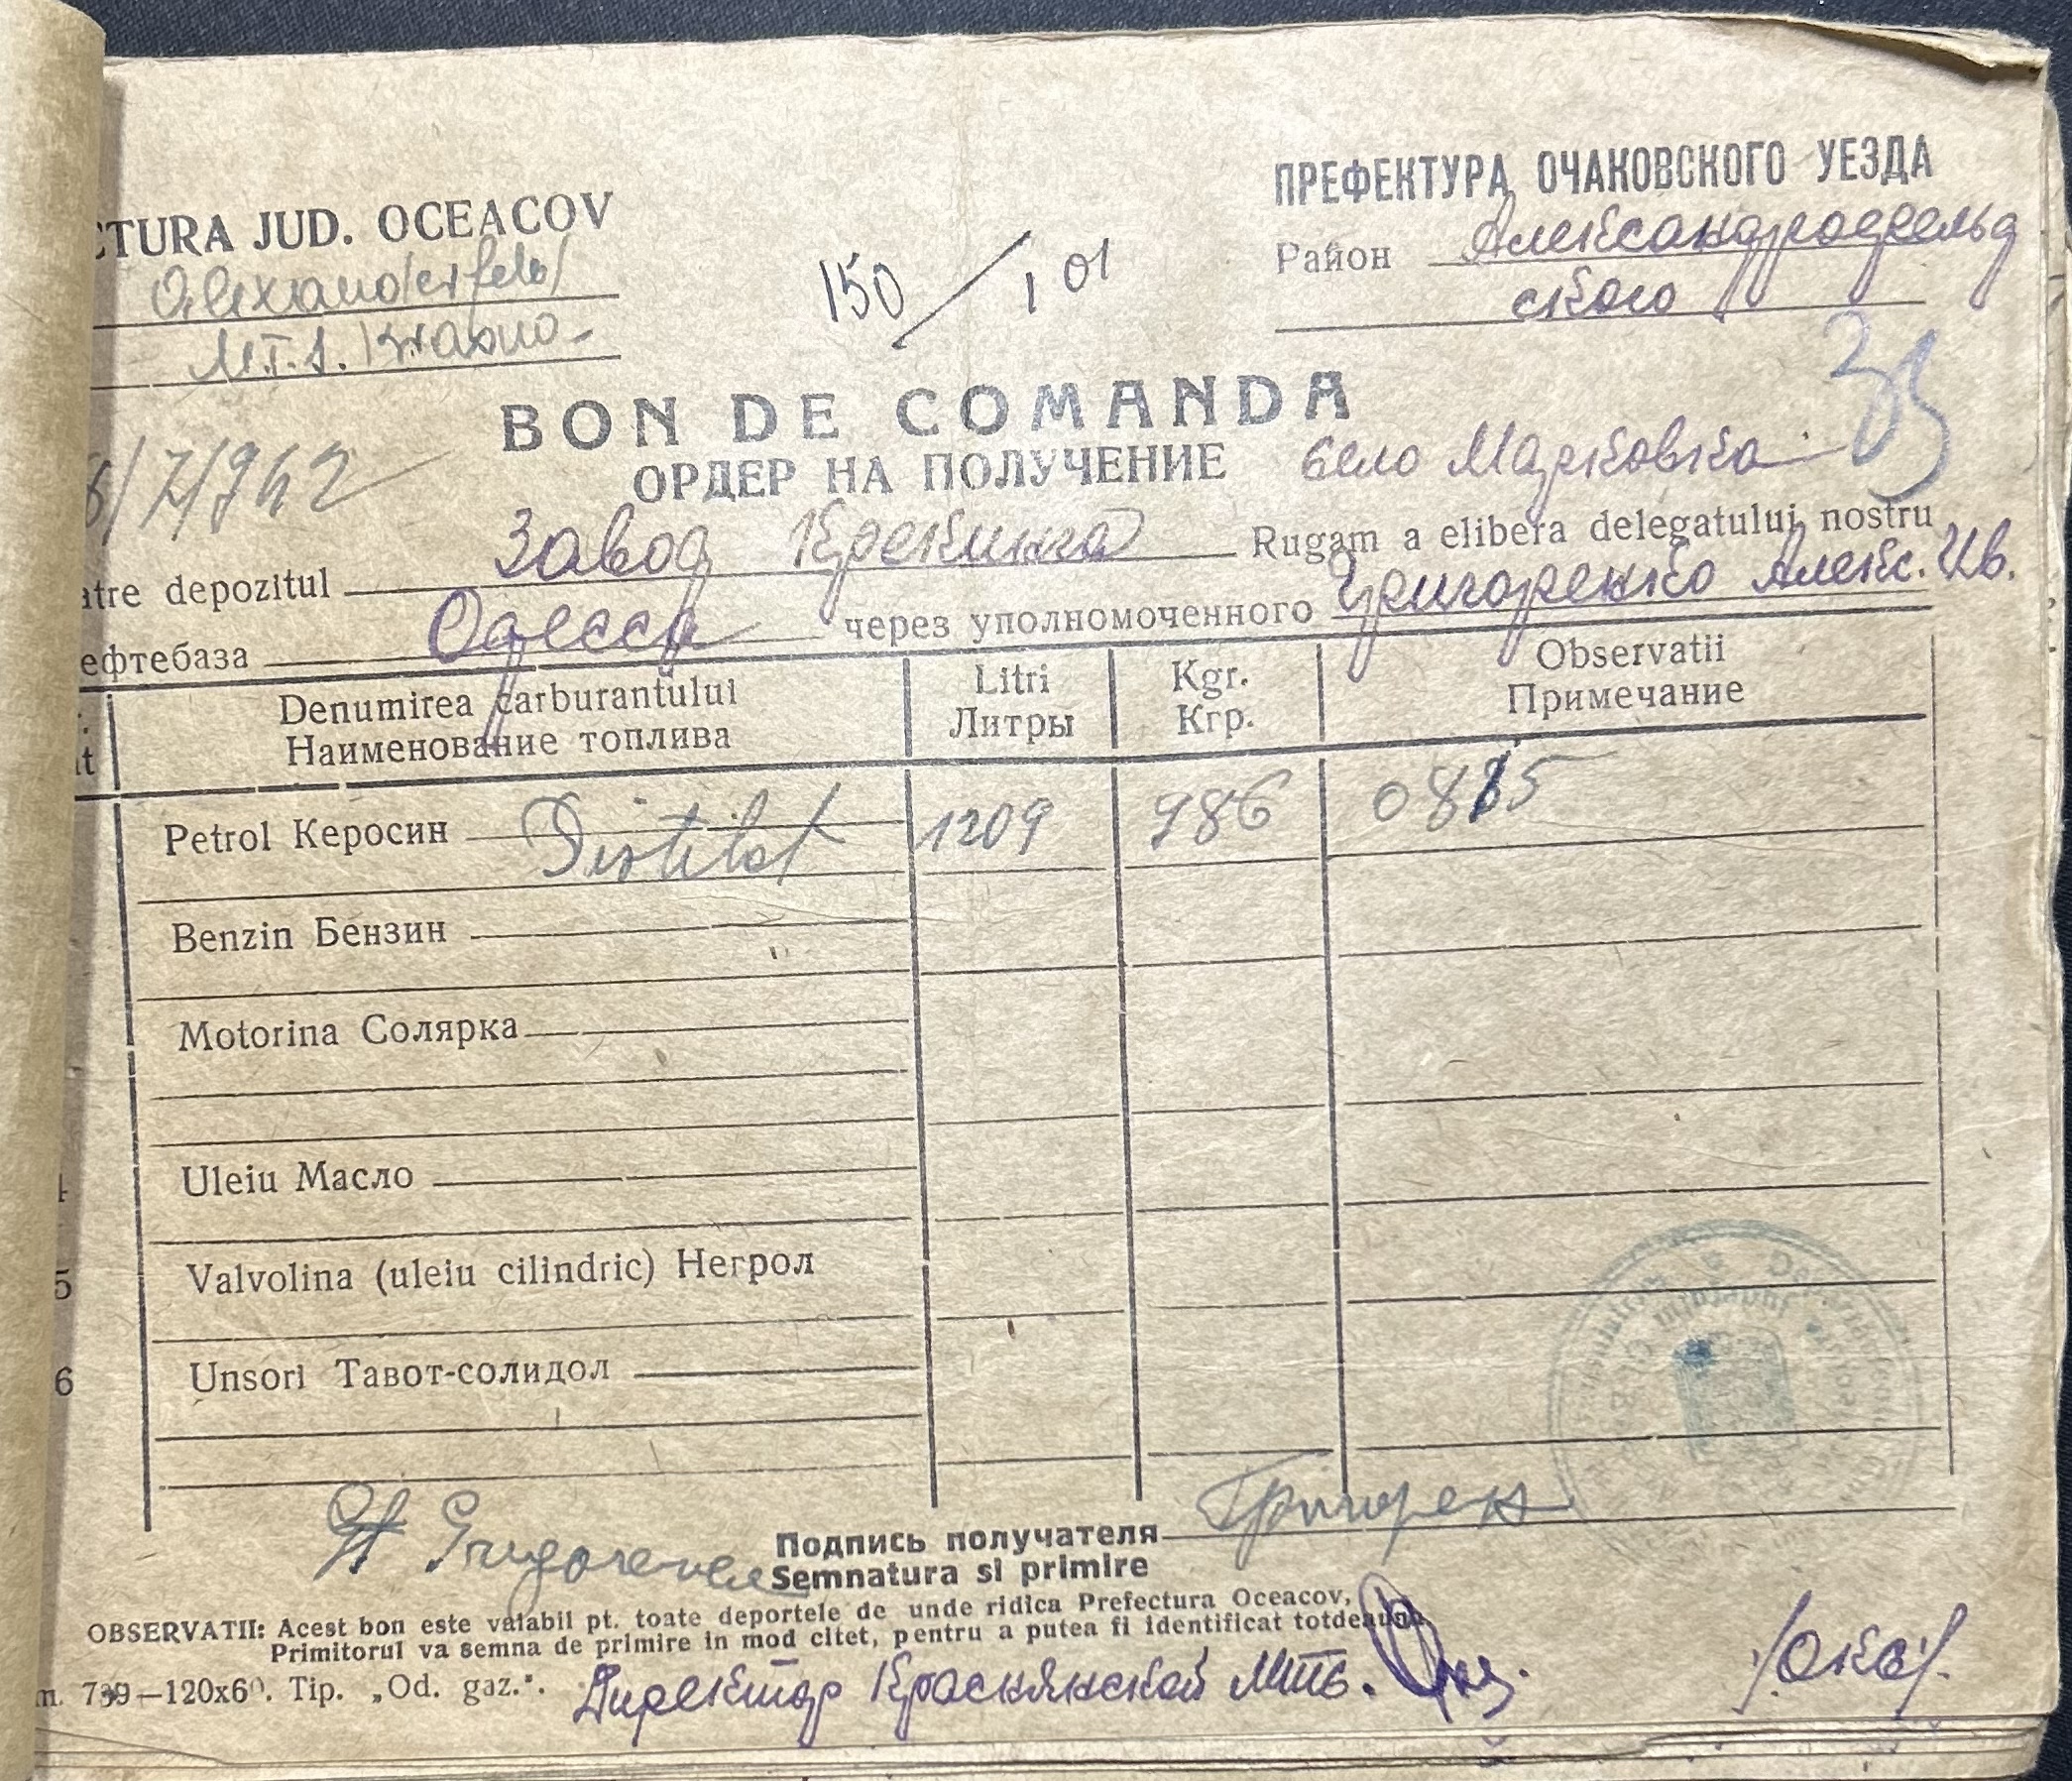 CTURA JUD. OCEACOV
ПРЕФЕКТУРА ОЧАКОВСКОГО УЕЗДА
Alexanderfeld
Район Александрофельд
ского
M.T.S. Krasno-
150 / 1 01
35
BON DE COMANDA
ОРДЕР НА ПОЛУЧЕНИЕ село Марковка
6/7/942
atre depozitul Завод Крекинга Rugam a elibera delegatului nostru
ефтебаза Одесса через уполномоченного Григоренко Алекс. Ив.
Denumirea carburantului Litri Kgr. Observatii
Наименование топлива Литры Кгр. Примечание
Petrol Керосин Distilat 1209 986 0815
Benzin Бензин
Motorina Солярка
4 Uleiu Масло
5 Valvolina (uleiu cilindric) Негрол
6 Unsori Тавот-солидол
Подпись получателя Григорен
Semnatura si primire
OBSERVATII: Acest bon este valabil pt. toate deportele de unde ridica Prefectura Oceacov,
Primitorul va semna de primire in mod citet, pentru a putea fi identificat totdeauna
m. 739—120x60. Tip. „Od. gaz.".
Директор Краснянской Мтс.